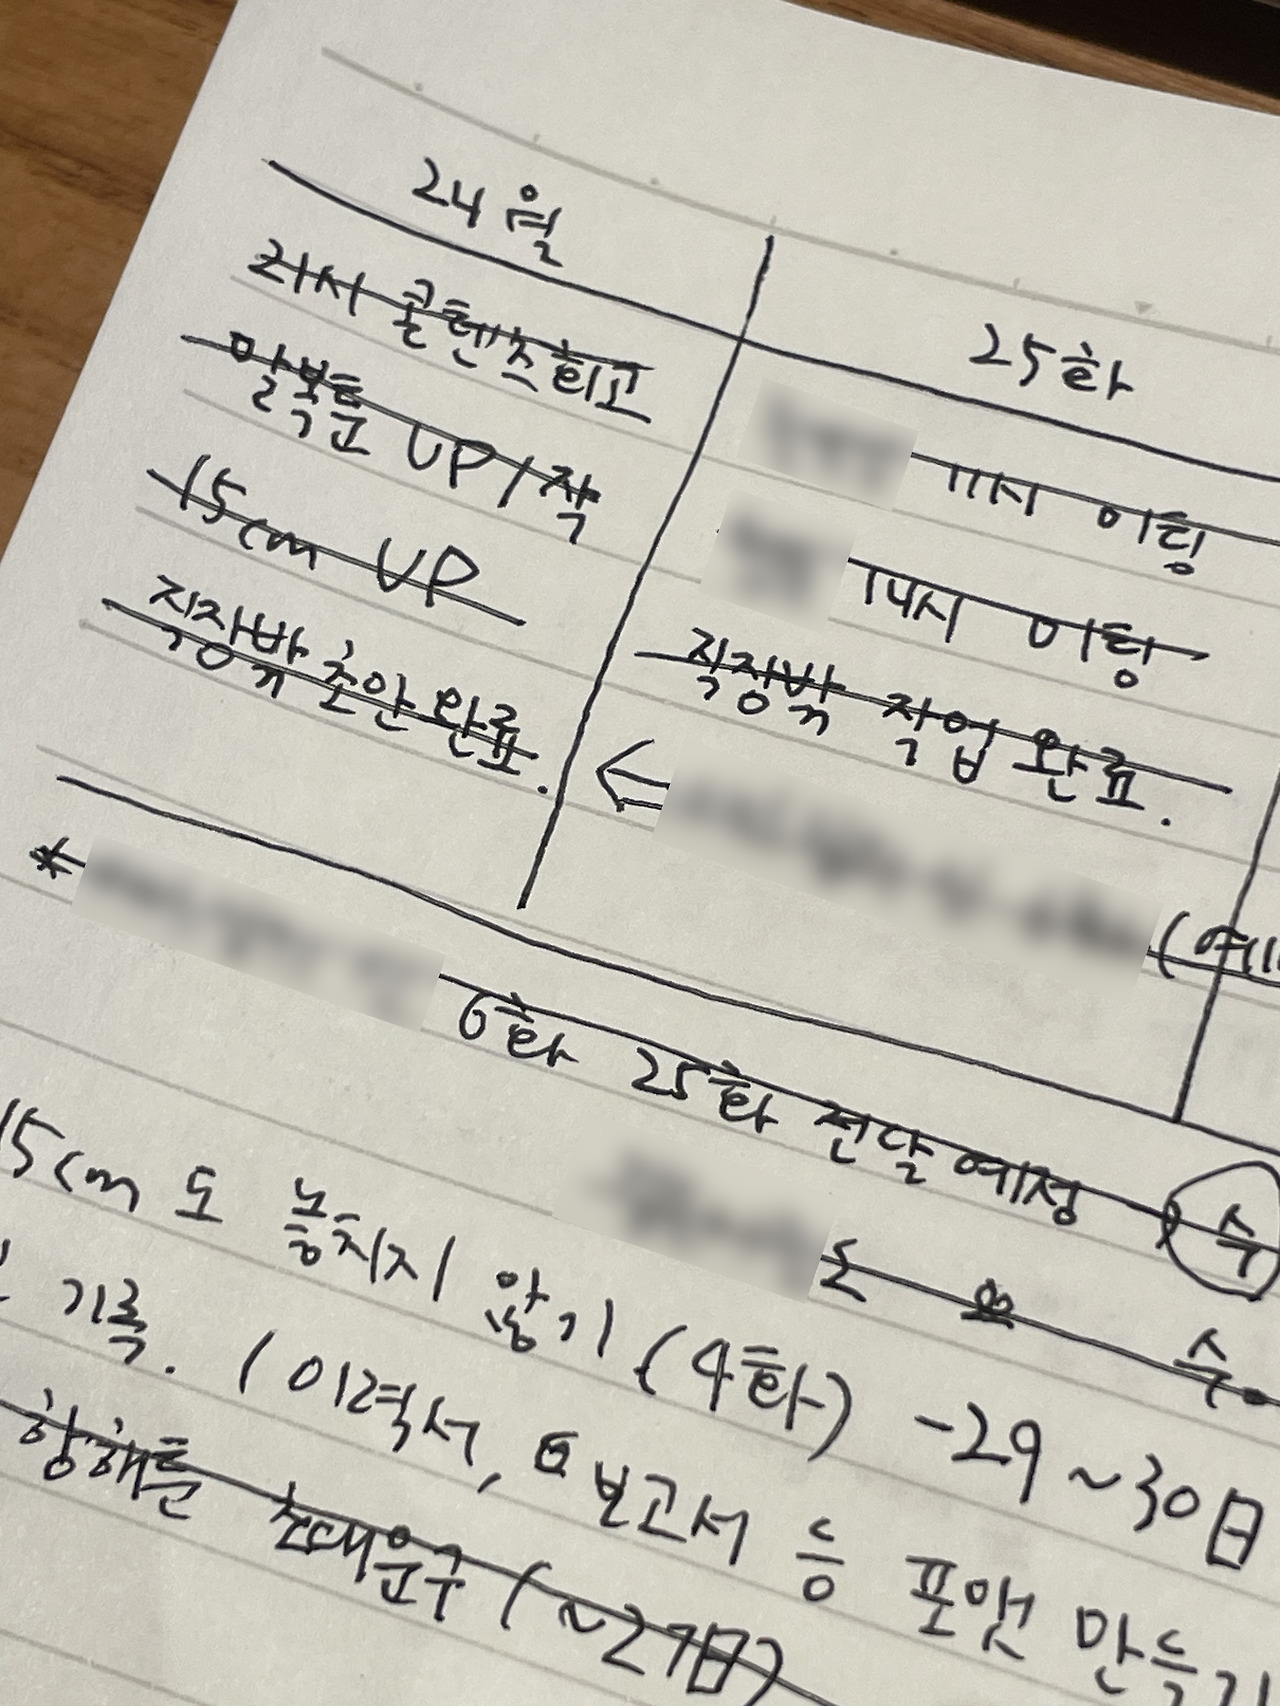 24 월
21시 콜 텐츠 회고
말복론 UP / 작
15cm UP
직장밖 초안 완료.
25 화
11시 미팅
14시 미팅
직장밖 작업 완료.
←
(예
* 6화 25화 전달예정 수
는 요 수.
15cm 도 놓치지 않기 (4화) -29 ~30日
기록. (이력서, 보고서 등 포맷 만들기
항해론 초대문구 (~27日)